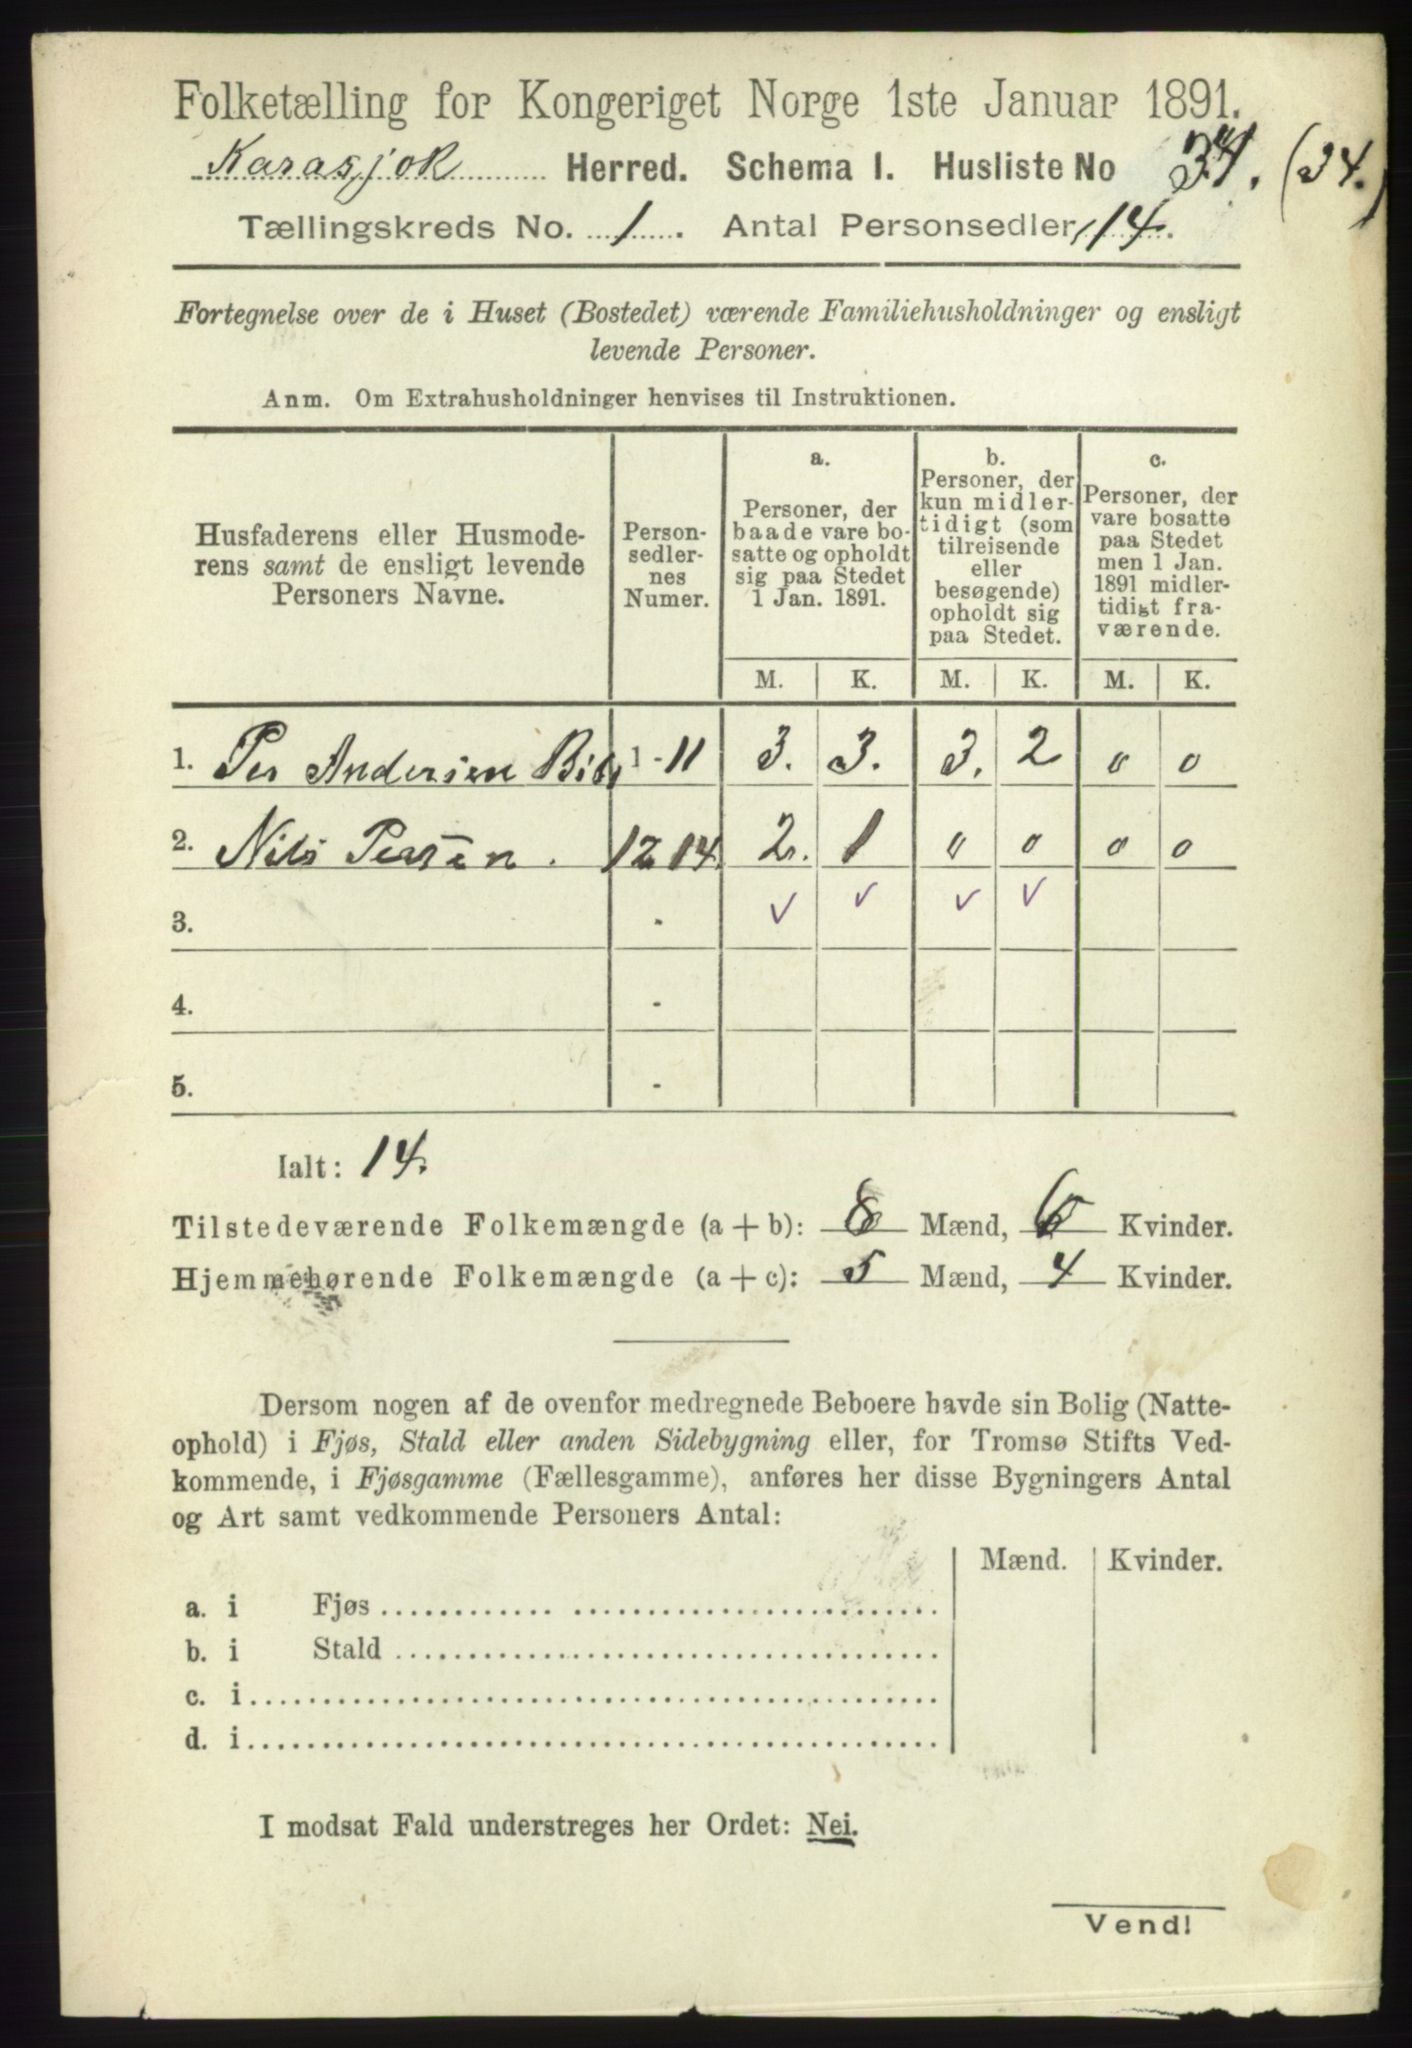 Folketælling for Kongeriget Norge 1ste Januar 1891.
Karasjok Herred. Schema I. Husliste No 34. (34.)
Tællingskreds No. 1. Antal Personsedler 14.
Fortegnelse over de i Huset (Bostedet) værende Familiehusholdninger og ensligt
levende Personer.
Anm. Om Extrahusholdninger henvises til Instruktionen.
Husfaderens eller Husmode-
rens samt de ensligt levende
Personers Navne.
Person-
sedler-
nes
Numer.
a.
Personer, der
baade vare bo-
satte og opholdt
sig paa Stedet
1 Jan. 1891.
b.
Personer, der
kun midler-
tidigt (som
tilreisende
eller
besøgende)
opholdt sig
paa Stedet.
c.
Personer, der
vare bosatte
paa Stedet
men 1 Jan.
1891 midler-
tidigt fra-
værende.
M. K. M. K. M. K.
1. Per Andersen 1 - 11 3. 3. 3. 2 0 0
2. Nils Persen. 12 14. 2. 1 0 0 0 0
3. - ✓ ✓ ✓ ✓
4. -
5. -
Ialt: 14.
Tilstedeværende Folkemængde (a + b): 8 Mænd, 6 Kvinder.
Hjemmehørende Folkemængde (a + c): 5 Mænd, 4 Kvinder.
Dersom nogen af de ovenfor medregnede Beboere havde sin Bolig (Natte-
ophold) i Fjøs, Stald eller anden Sidebygning eller, for Tromsø Stifts Ved-
kommende, i Fjøsgamme (Fællesgamme), anføres her disse Bygningers Antal
og Art samt vedkommende Personers Antal:
Mænd. Kvinder.
a. i Fjøs
b. i Stald
c. i
d. i
I modsat Fald understreges her Ordet: Nei.
Vend!